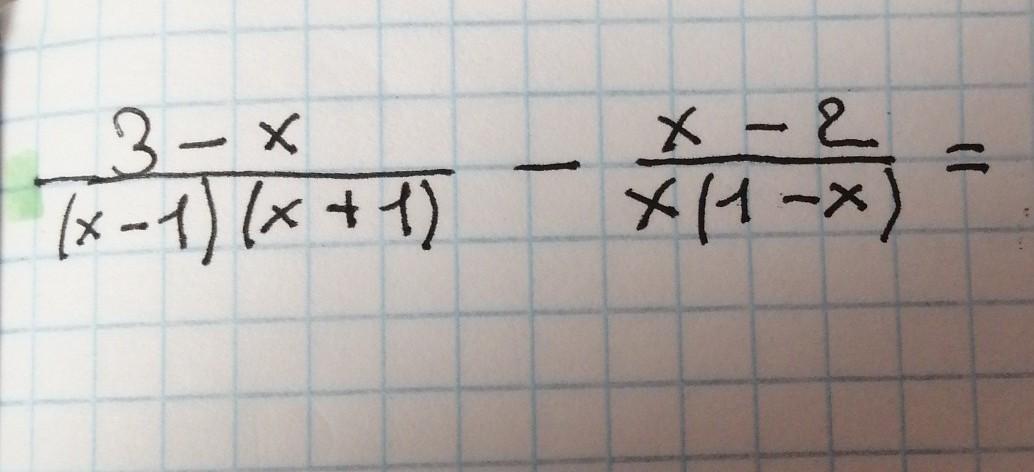 \frac{3 - x}{(x - 1)(x + 1)} - \frac{x - 2}{x(1 - x)} =